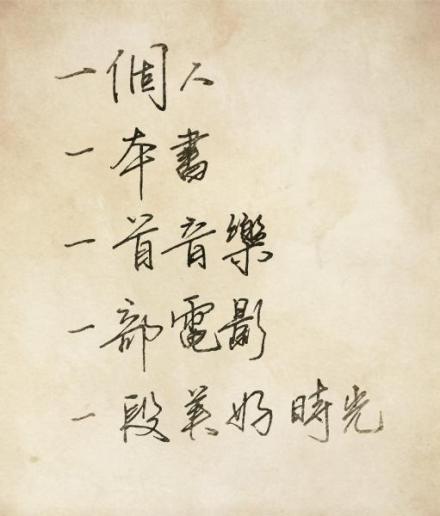 一個人
一本書
一首音樂
一部電影
一段美好時光